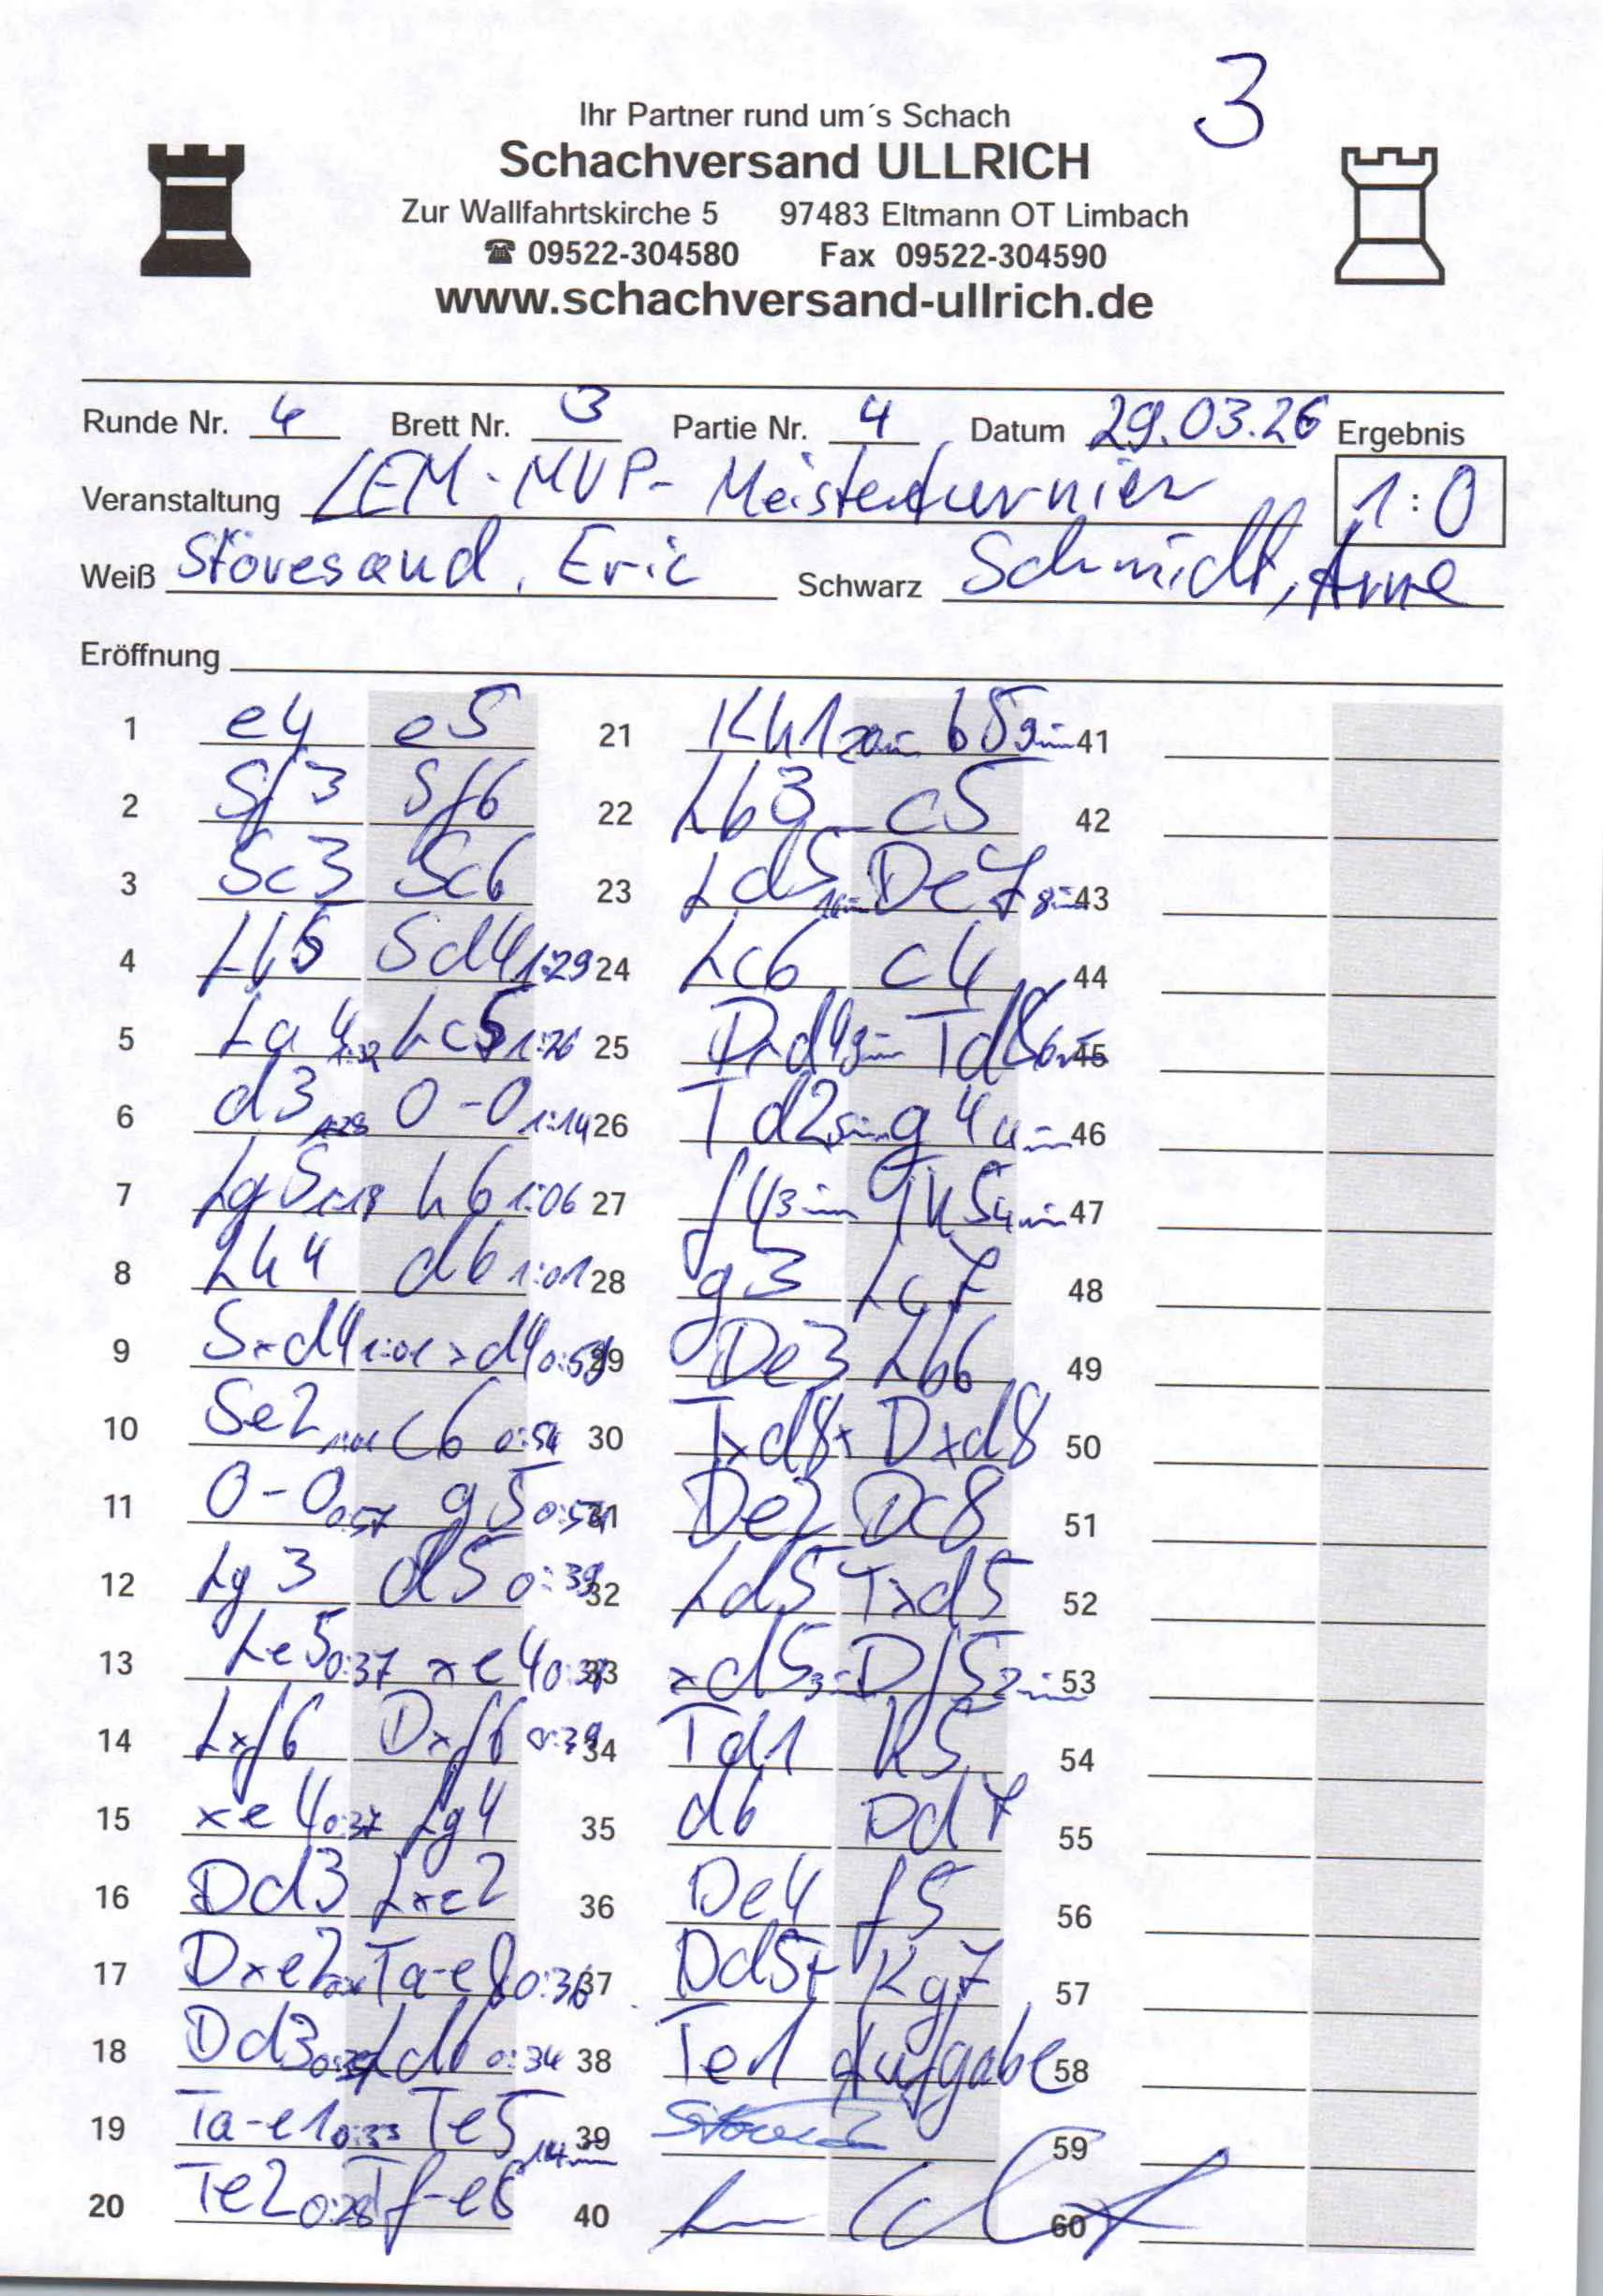 3
Ihr Partner rund um´s Schach
Schachversand ULLRICH
Zur Wallfahrtskirche 5 97483 Eltmann OT Limbach
☎ 09522-304580 Fax 09522-304590
www.schachversand-ullrich.de
Runde Nr. 4 Brett Nr. 3 Partie Nr. 4 Datum 29.03.26 Ergebnis
Veranstaltung LEM-MVP-Meisterturnier 1:0
Weiß Stövesand, Eric Schwarz Schmidt, Arne
Eröffnung
1 e4 e5 21 Kh1 20min b5 9min 41
2 Sf3 Sf6 22 Lb3 c5 42
3 Sc3 Sc6 23 Ld5 De7 8min 43
4 Lb5 Sd4 1:29 24 Lc6 c4 44
5 La4 Lc5 1:26 25 Dd4 Td8 45
6 d3 0-0 1:14 26 Td2 5min g4 4min 46
7 Lg5 1:18 h6 1:06 27 f4 3min 47
8 Lh4 d6 1:01 28 g3 Lc7 48
9 Sxd4 1:01 xd4 29 De3 Lb6 49
10 Se2 c6 0:54 30 Txd8+ Dxd8 50
11 0-0 0:57 g5 31 De2 Dc8 51
12 Lg3 d5 0:39 32 Ld5 Txd5 52
13 Le5 0:37 xe4 33 xd5 3min Df5 2min 53
14 Lxf6 Dxf6 0:39 34 Td1 h5 54
15 xe4 0:37 Lg4 35 d6 Dd7 55
16 Dd3 Lxe2 36 De4 f5 56
17 Dxe2 Ta-e8 0:36 37 Dd5+ Kg7 57
18 Dd3 Ld6 0:34 38 Te1 Aufgabe 58
19 Ta-e1 0:33 Te5 14min 39 59
20 Te2 0:28 Tf-e8 40 60